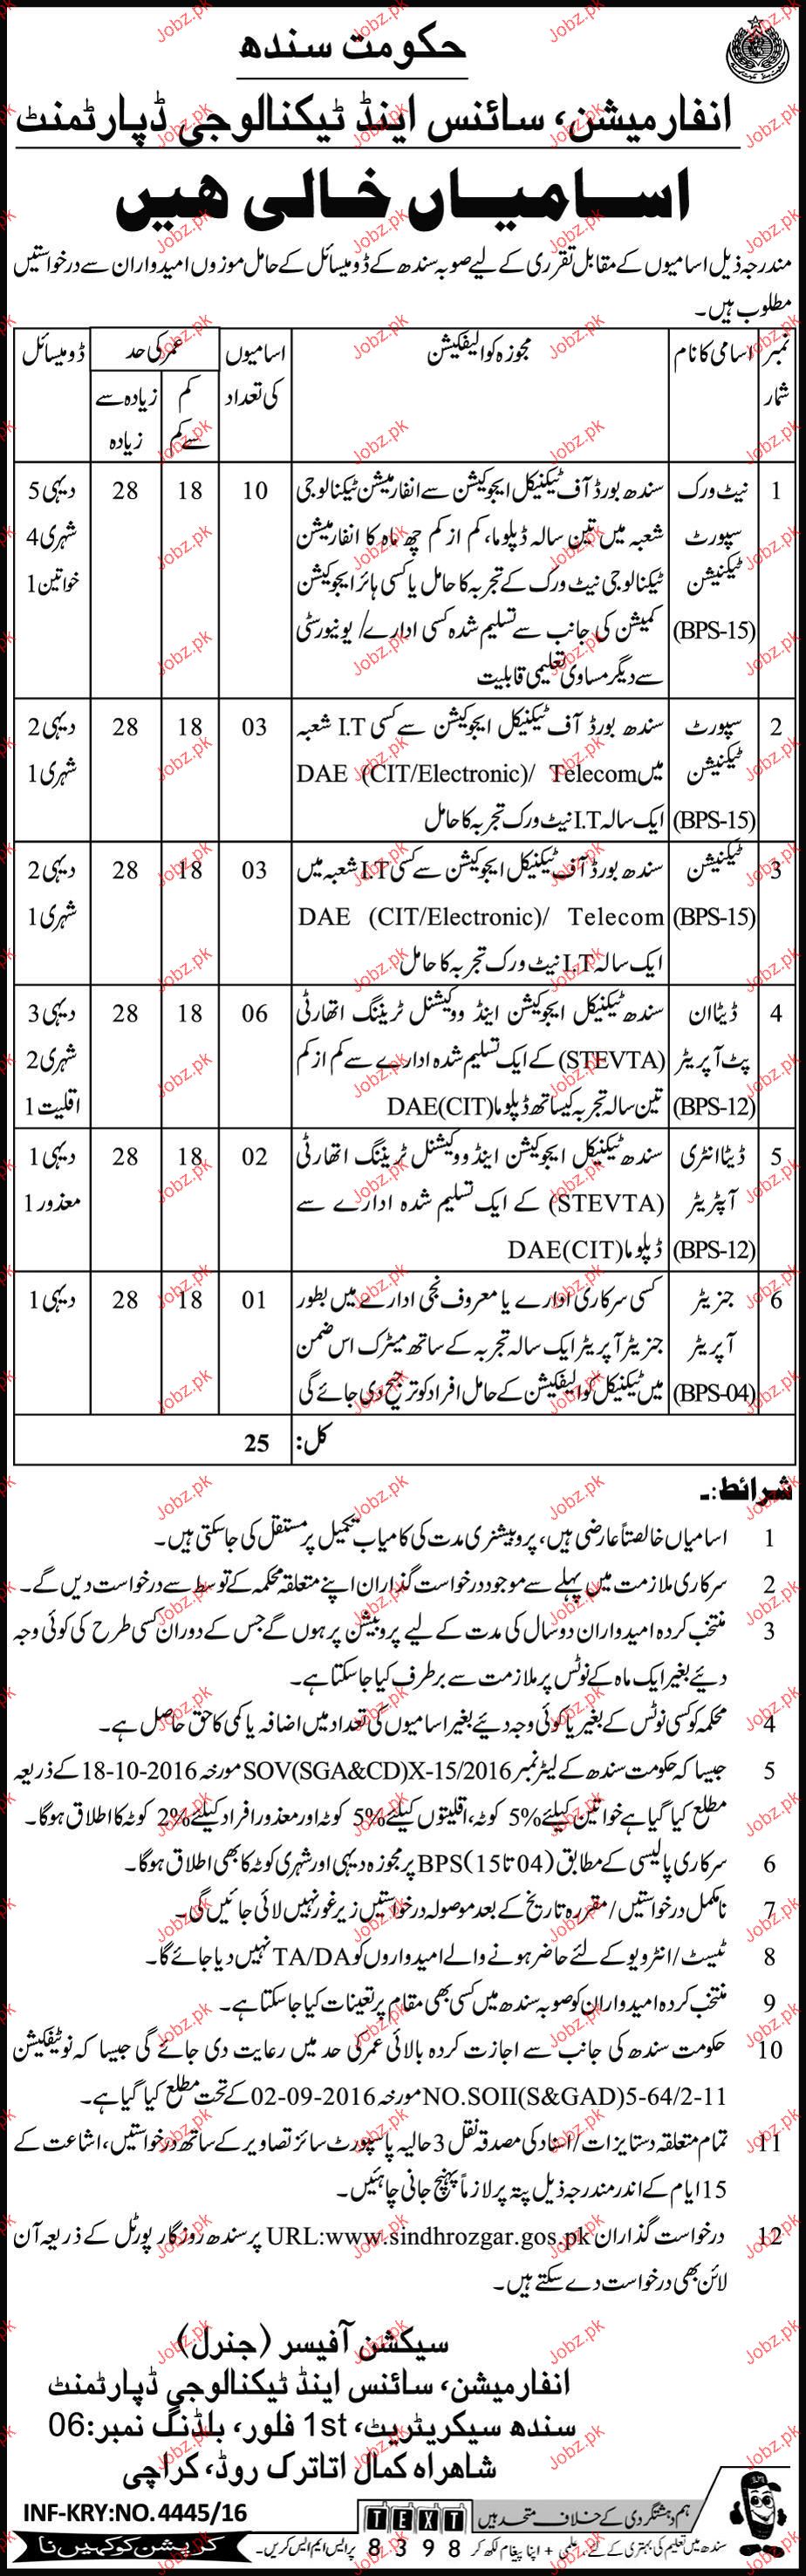 حکومت سندھ
انفارمیشن، سائنس اینڈ ٹیکنالوجی ڈپارٹمنٹ
اسامیاں خالی ہیں
مندرجہ ذیل اسامیوں کے مقابل تقرری کے لیے صوبہ سندھ کے ڈومیسائل کے حامل موزوں امیدواران سے درخواستیں
مطلوب ہیں۔
نمبر شمار | اسامی کا نام | مجوزہ کوالیفکیشن | اسامیوں کی تعداد | عمر کی حد | ڈومیسائل
کم سے کم | زیادہ سے زیادہ
1 | نیٹ ورک | سندھ بورڈ آف ٹیکنیکل ایجوکیشن سے انفارمیشن ٹیکنالوجی | 10 | 18 | 28 | دیہی 5
سپورٹ | شعبہ میں تین سالہ ڈپلوما، کم از کم چھ ماہ کا انفارمیشن | شہری 4
ٹیکنیشن | ٹیکنالوجی نیٹ ورک کے تجربہ کا حامل یا کسی ہائر ایجوکیشن | خواتین 1
(BPS-15) | کمیشن کی جانب سے تسلیم شدہ کسی ادارے/ یونیورسٹی
سے دیگر مساوی تعلیمی قابلیت
2 | سپورٹ | سندھ بورڈ آف ٹیکنیکل ایجوکیشن سے کسی I.T شعبہ | 03 | 18 | 28 | دیہی 2
ٹیکنیشن | میں DAE (CIT/Electronic)/ Telecom | شہری 1
(BPS-15) | ایک سالہ I.T نیٹ ورک تجربہ کا حامل
3 | ٹیکنیشن | سندھ بورڈ آف ٹیکنیکل ایجوکیشن سے کسی I.T شعبہ میں | 03 | 18 | 28 | دیہی 2
(BPS-15) | DAE (CIT/Electronic)/ Telecom | شہری 1
ایک سالہ I.T نیٹ ورک تجربہ کا حامل
4 | ڈیٹا ان | سندھ ٹیکنیکل ایجوکیشن اینڈ ووکیشنل ٹریننگ اتھارٹی | 06 | 18 | 28 | دیہی 3
پٹ آپریٹر | (STEVTA) کے ایک تسلیم شدہ ادارے سے کم از کم | شہری 2
(BPS-12) | تین سالہ تجربہ کیساتھ ڈپلوما DAE(CIT) | اقلیت 1
5 | ڈیٹا انٹری | سندھ ٹیکنیکل ایجوکیشن اینڈ ووکیشنل ٹریننگ اتھارٹی | 02 | 18 | 28 | دیہی 1
آپریٹر | (STEVTA) کے ایک تسلیم شدہ ادارے سے | معذور 1
(BPS-12) | ڈپلوما DAE(CIT)
6 | جنریٹر | کسی سرکاری ادارے یا معروف نجی ادارے میں بطور | 01 | 18 | 28 | دیہی 1
آپریٹر | جنریٹر آپریٹر ایک سالہ تجربہ کے ساتھ میٹرک اس ضمن
(BPS-04) | میں ٹیکنیکل کوالیفکیشن کے حامل افراد کو ترجیح دی جائے گی
کل: 25
شرائط:۔
1 اسامیاں خالصتاً عارضی ہیں، پروبیشنری مدت کی کامیاب تکمیل پر مستقل کی جاسکتی ہیں۔
2 سرکاری ملازمت میں پہلے سے موجود درخواست گذاران اپنے متعلقہ محکمہ کے توسط سے درخواست دیں گے۔
3 منتخب کردہ امیدواران دو سال کی مدت کے لیے پروبیشن پر ہوں گے جس کے دوران کسی طرح کی کوئی وجہ
دیئے بغیر ایک ماہ کے نوٹس پر ملازمت سے برطرف کیا جاسکتا ہے۔
4 محکمہ کو کسی نوٹس کے بغیر یا کوئی وجہ دیئے بغیر اسامیوں کی تعداد میں اضافہ یا کمی کا حق حاصل ہے۔
5 جیسا کہ حکومت سندھ کے لیٹر نمبر SOV(SGA&CD)X-15/2016 مورخہ 18-10-2016 کے ذریعہ
مطلع کیا گیا ہے خواتین کیلئے 5% کوٹہ، اقلیتوں کیلئے 5% کوٹہ اور معذور افراد کیلئے 2% کوٹہ کا اطلاق ہوگا۔
6 سرکاری پالیسی کے مطابق (04 تا 15) BPS پر مجوزہ دیہی اور شہری کوٹہ کا بھی اطلاق ہوگا۔
7 نامکمل درخواستیں/ مقررہ تاریخ کے بعد موصولہ درخواستیں زیر غور نہیں لائی جائیں گی۔
8 ٹیسٹ/ انٹرویو کے لئے حاضر ہونے والے امیدواروں کو TA/DA نہیں دیا جائے گا۔
9 منتخب کردہ امیدواران کو صوبہ سندھ میں کسی بھی مقام پر تعینات کیا جاسکتا ہے۔
10 حکومت سندھ کی جانب سے اجازت کردہ بالائی عمر کی حد میں رعایت دی جائے گی جیسا کہ نوٹیفکیشن
NO.SOII(S&GAD)5-64/2-11 مورخہ 02-09-2016 کے تحت مطلع کیا گیا ہے۔
11 تمام متعلقہ دستاویزات/ اسناد کی مصدقہ نقل 3 حالیہ پاسپورٹ سائز تصاویر کے ساتھ درخواستیں، اشاعت کے
15 ایام کے اندر مندرجہ ذیل پتہ پر لازماً پہنچ جانی چاہئیں۔
12 درخواست گذاران URL:www.sindhrozgar.gos.pk پر سندھ روزگار پورٹل کے ذریعہ آن
لائن بھی درخواست دے سکتے ہیں۔
سیکشن آفیسر (جنرل)
انفارمیشن، سائنس اینڈ ٹیکنالوجی ڈپارٹمنٹ
سندھ سیکریٹریٹ، 1st فلور، بلڈنگ نمبر: 06
شاھراہ کمال اتاترک روڈ، کراچی
INF-KRY:NO.4445/16
ہم دہشتگردی کے خلاف متحد ہیں TEXT
سندھ میں تعلیم کی بہتری کے لئے + اپنا پیغام لکھ کر 8398 پر ایس ایم ایس کریں۔
کرپشن کو کہیں نا
Jobz.pk